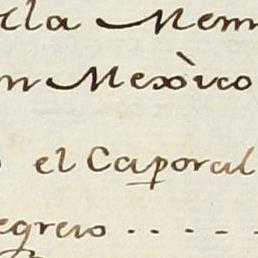 lla Mem
n Mexìco
el Caporal
egreso . . . . .